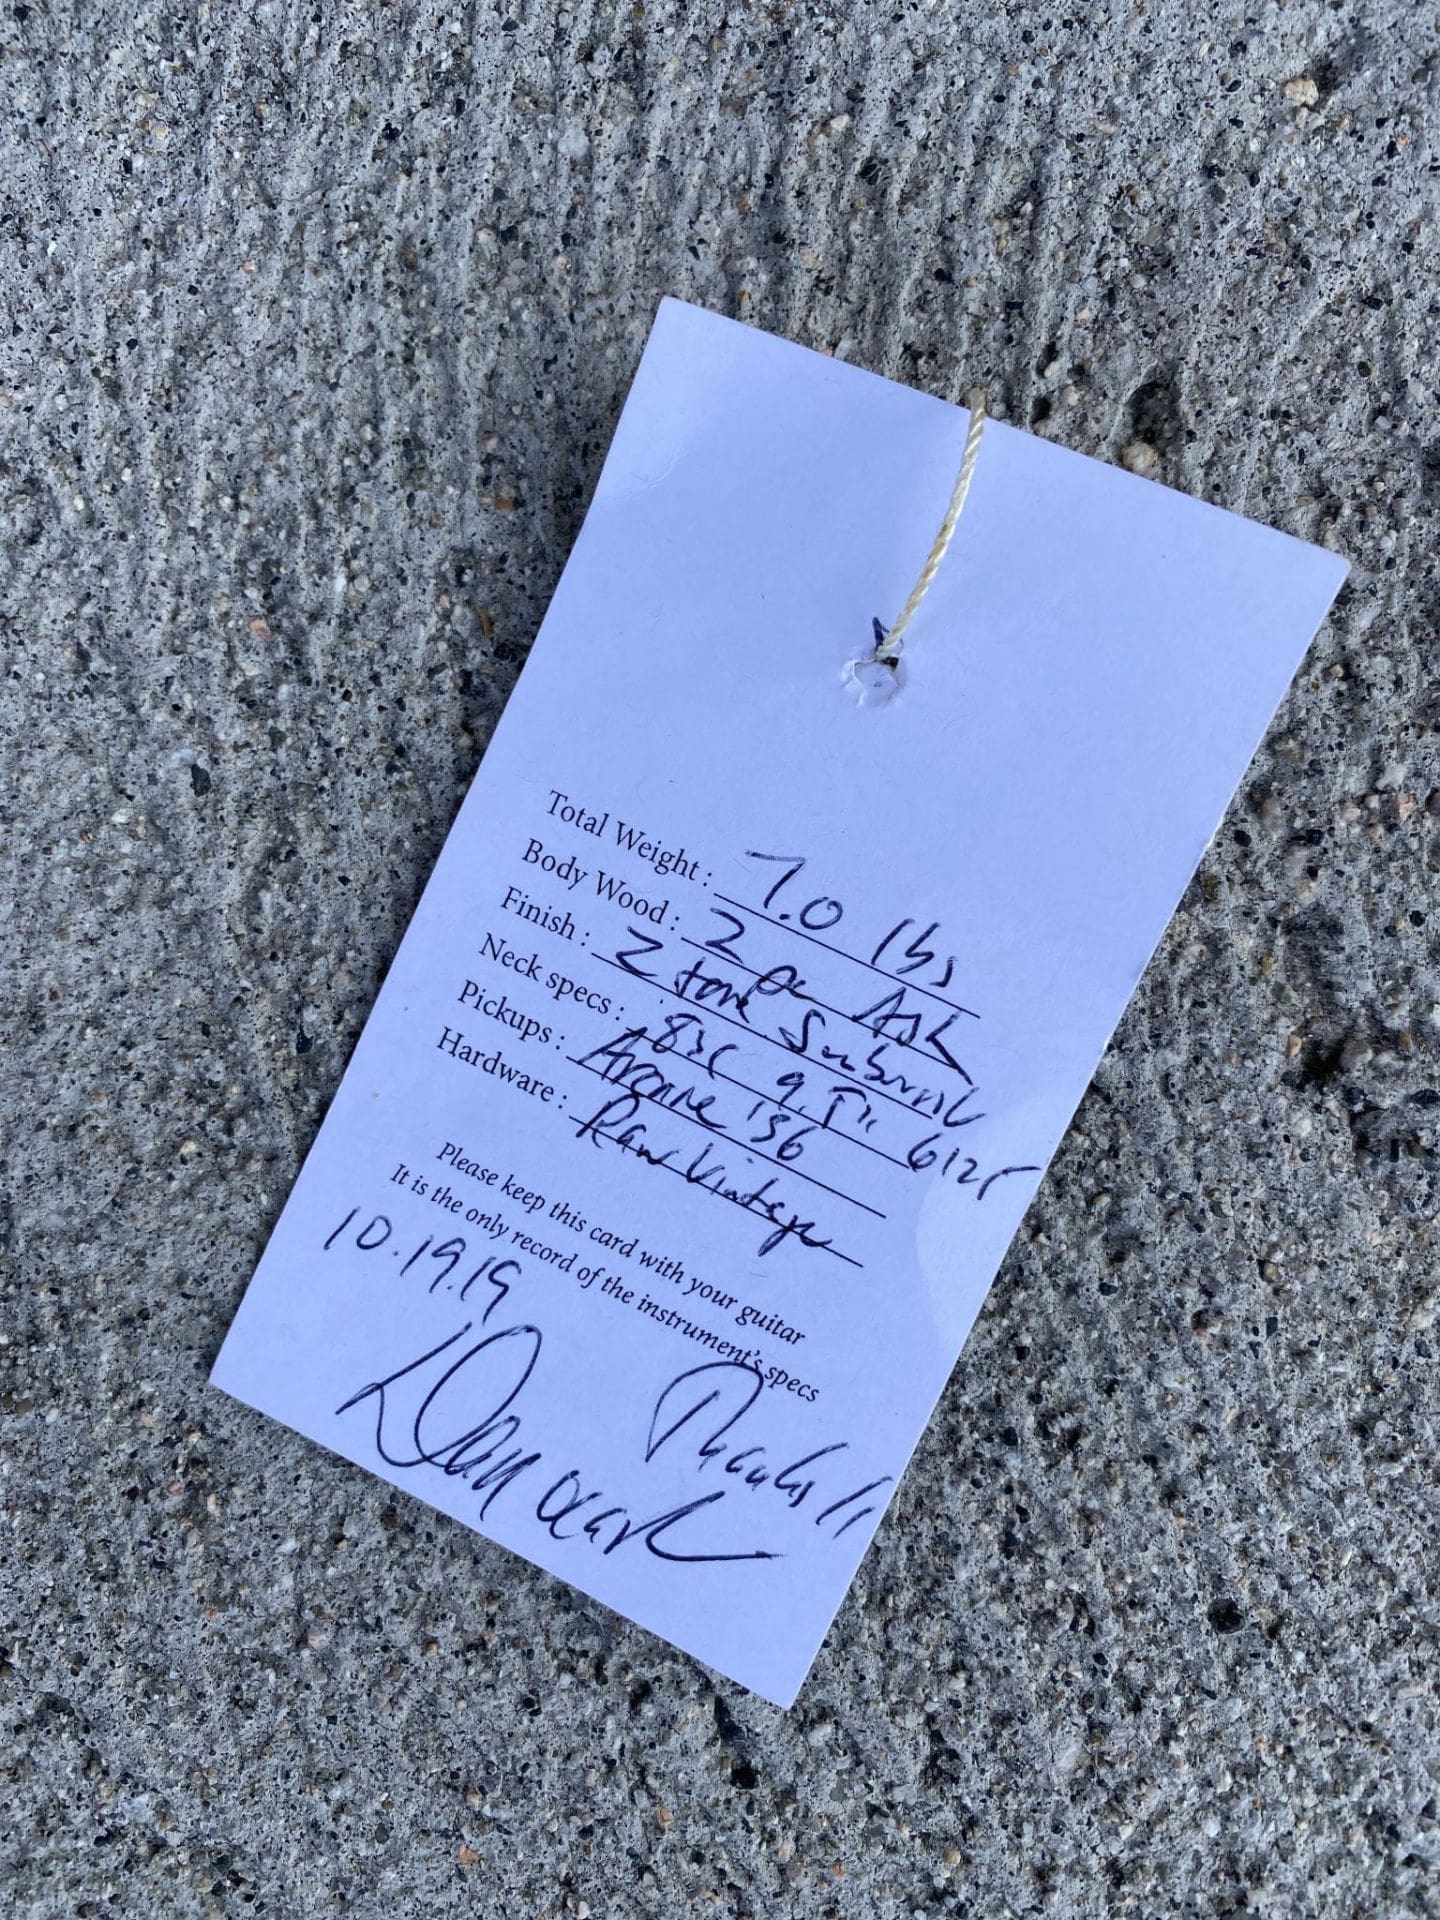 Total Weight: 7.0 lbs
Body Wood: 2 pc Ash
Finish: 2 tone Sunburst
Neck specs: .83C 9.5" 6125
Pickups: Arcane '56
Hardware: Raw Vintage
Please keep this card with your guitar
It is the only record of the instrument's specs
10.19.19
Thanks!!
Dan